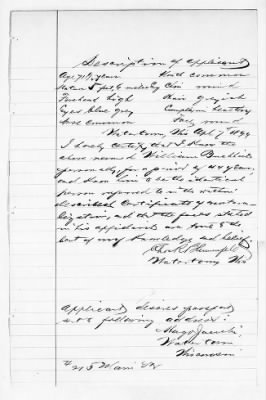 Description of applicant
Age 71½ years Mouth common
Stature 5 feet 6 inches Eng Chin round
Forehead high Hair greyish
Eyes blue grey Complexion
Nose common Face round
Watertown, Wis Apl 7 1899
I hereby certify that I know the
above named William Buchheit
personally, for a period of 44 years,
and know him to be the identical
person referred to in the within
described Certificate of natura-
lization, and that the facts stated
in his affidavit are true to the
best of my knowledge and belief.
Watertown Wis
Applicant desires passport
sent to following address:
Hugo Jaeckel
Watertown
Wisconsin
# 115 Main St